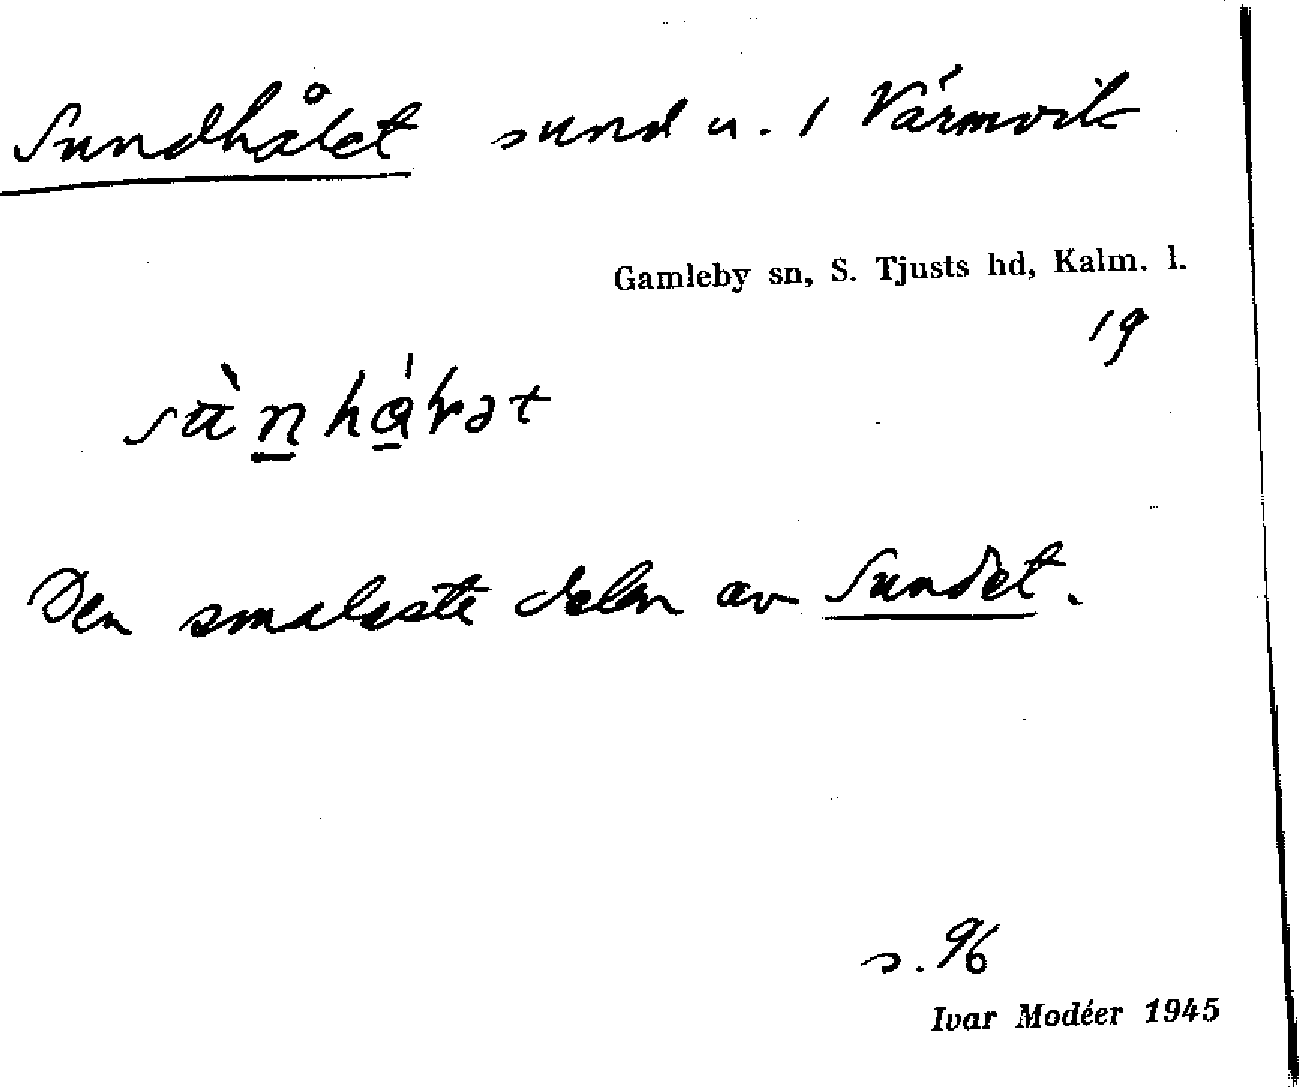 Sundhålet sund u. / Värmvik
Gamleby sn, S. Tjusts hd, Kalm. l.
19
Den smalaste delen av Sundet.
s. 96
Ivar Modéer 1945